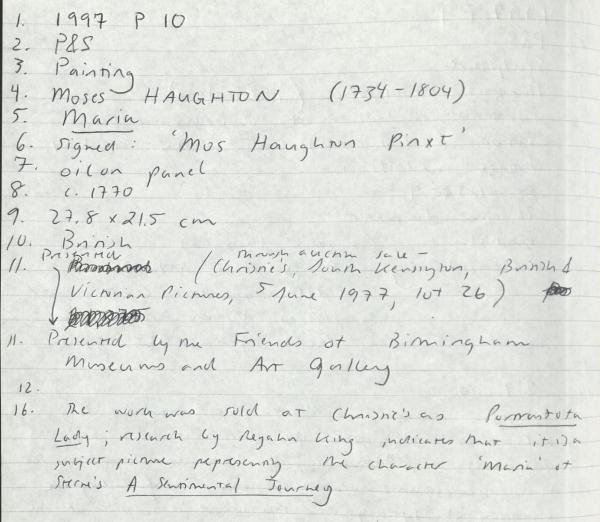 1. 1997 P 10
2. P&S
3. Painting
4. Moses HAUGHTON (1734-1804)
5. Maria
6. signed: 'Mos Haughton Pinxt'
7. oil on panel
8. c. 1770
9. 27.8 x 21.5 cm
10. British
Presented through auction sale -
11. (Christie's, South Kensington, British &
Victorian Pictures, 5 June 1977, lot 26)
11. Presented by the Friends of Birmingham
Museums and Art Gallery
12.
16. The work was sold at Christie's as Portrait of a
Lady; research by King indicates that it is a
subject picture representing the character 'Maria' of
Sterne's A Sentimental Journey